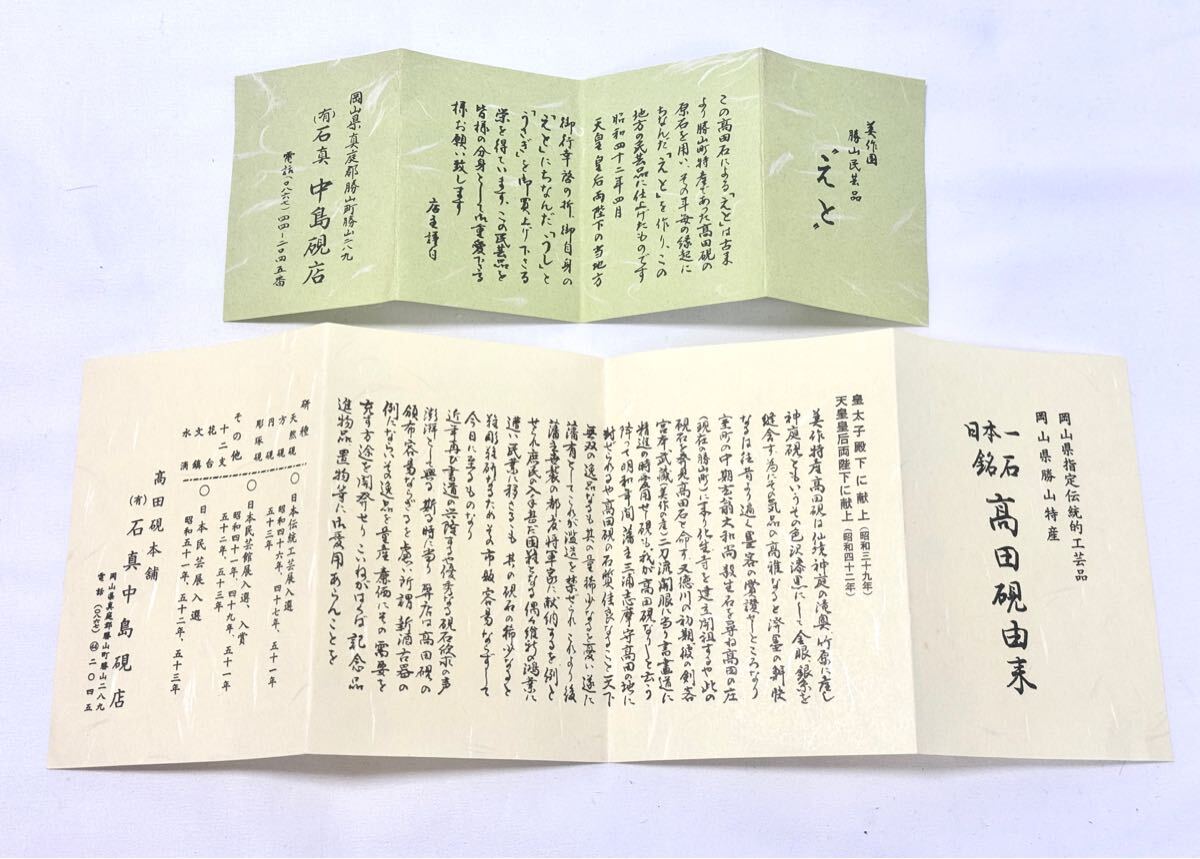 美作国
勝山民芸品
〝えと〟
この高田石による「えと」は古来
より勝山町特産であった高田硯の
原石を用い、その年毎の縁起に
ちなんだ「えと」を作り、この
地方の民芸品に仕上げたものです
昭和四十二年四月
天皇皇后両陛下の当地方
御行幸啓の折、御自身の
「えと」にちなんだ「うし」と
「うさぎ」を御買上げ下さる
栄を得ています、この民芸品を
皆様の分身として御重愛下さる
様お願い致します
店主謹白
岡山県真庭郡勝山町勝山二八九
(有)石真 中島硯店
電話(〇八六七)四四-二〇四五番
岡山県指定伝統的工芸品
岡山県勝山特産
日本一
銘石 高田硯由来
皇太子殿下に献上(昭和三十九年)
天皇皇后両陛下に献上(昭和四十二年)
美作特産高田硯は仙境神庭の滝奥竹原に産し
神庭硯ともいうその色沢漆黒にして金眼銀糸を
縫含す為にその気品の高雅なると溌墨の鮮快
なるは往昔より過く墨客の賞讃せしところなり
室町の中期玄翁大和尚殺生石を尋ね高田の庄
(現在の勝山町)に来り化生寺を建立開祖するや此の
硯石を発見高田石と命す、又徳川の初期彼の剣客
宮本武蔵(美作の産)二刀流開眼に当り書画道に
精進の時愛用せし硯も我が高田硯なりしと云う
降って明和年間藩主三浦志摩守高田の地に
封せらるや高田硯の石質佳良なること天下
無双の逸品なるも其の量稀少なるを憂い遂に
藩有としてこれが濫造を禁ぜられこれより後
藩主参勤の都度将軍家に献納するを例と
せられ庶民の入手甚だ困難となる偶々維新の鴻業に
遭い民業に移さるるも其の硯石の稀少なると
採彫難研なるためその市販容易ならずして
今日に至るものなり
近年再び書道の興隆するや優秀なる硯石欲求の声
澎湃として興る斯る時に当り弊店は高田硯の
頒布容易ならざるを慮い所謂新酒古器の
例にならいその逸品を量産廉価にその需要を
充す方途を開発せりこいねがはくば記念品
進物品、置物等に御愛用あらんことを
研種
天然硯
方硯
円硯
彫琢硯
その他
十二支
花台
文鎮
水滴
○日本伝統工芸展入選
昭和四十六年、四十七年、五十一年
五十三年
○日本民芸館展入選、入賞
昭和四十一年、四十九年、五十一年
五十二年、五十三年
○日本民芸展入選
昭和五十一年、五十二年、五十三年
高田硯本舗
(有)石真中島硯店
岡山県真庭郡勝山町勝山二八九
電話(〇八六七)㊹二〇四五